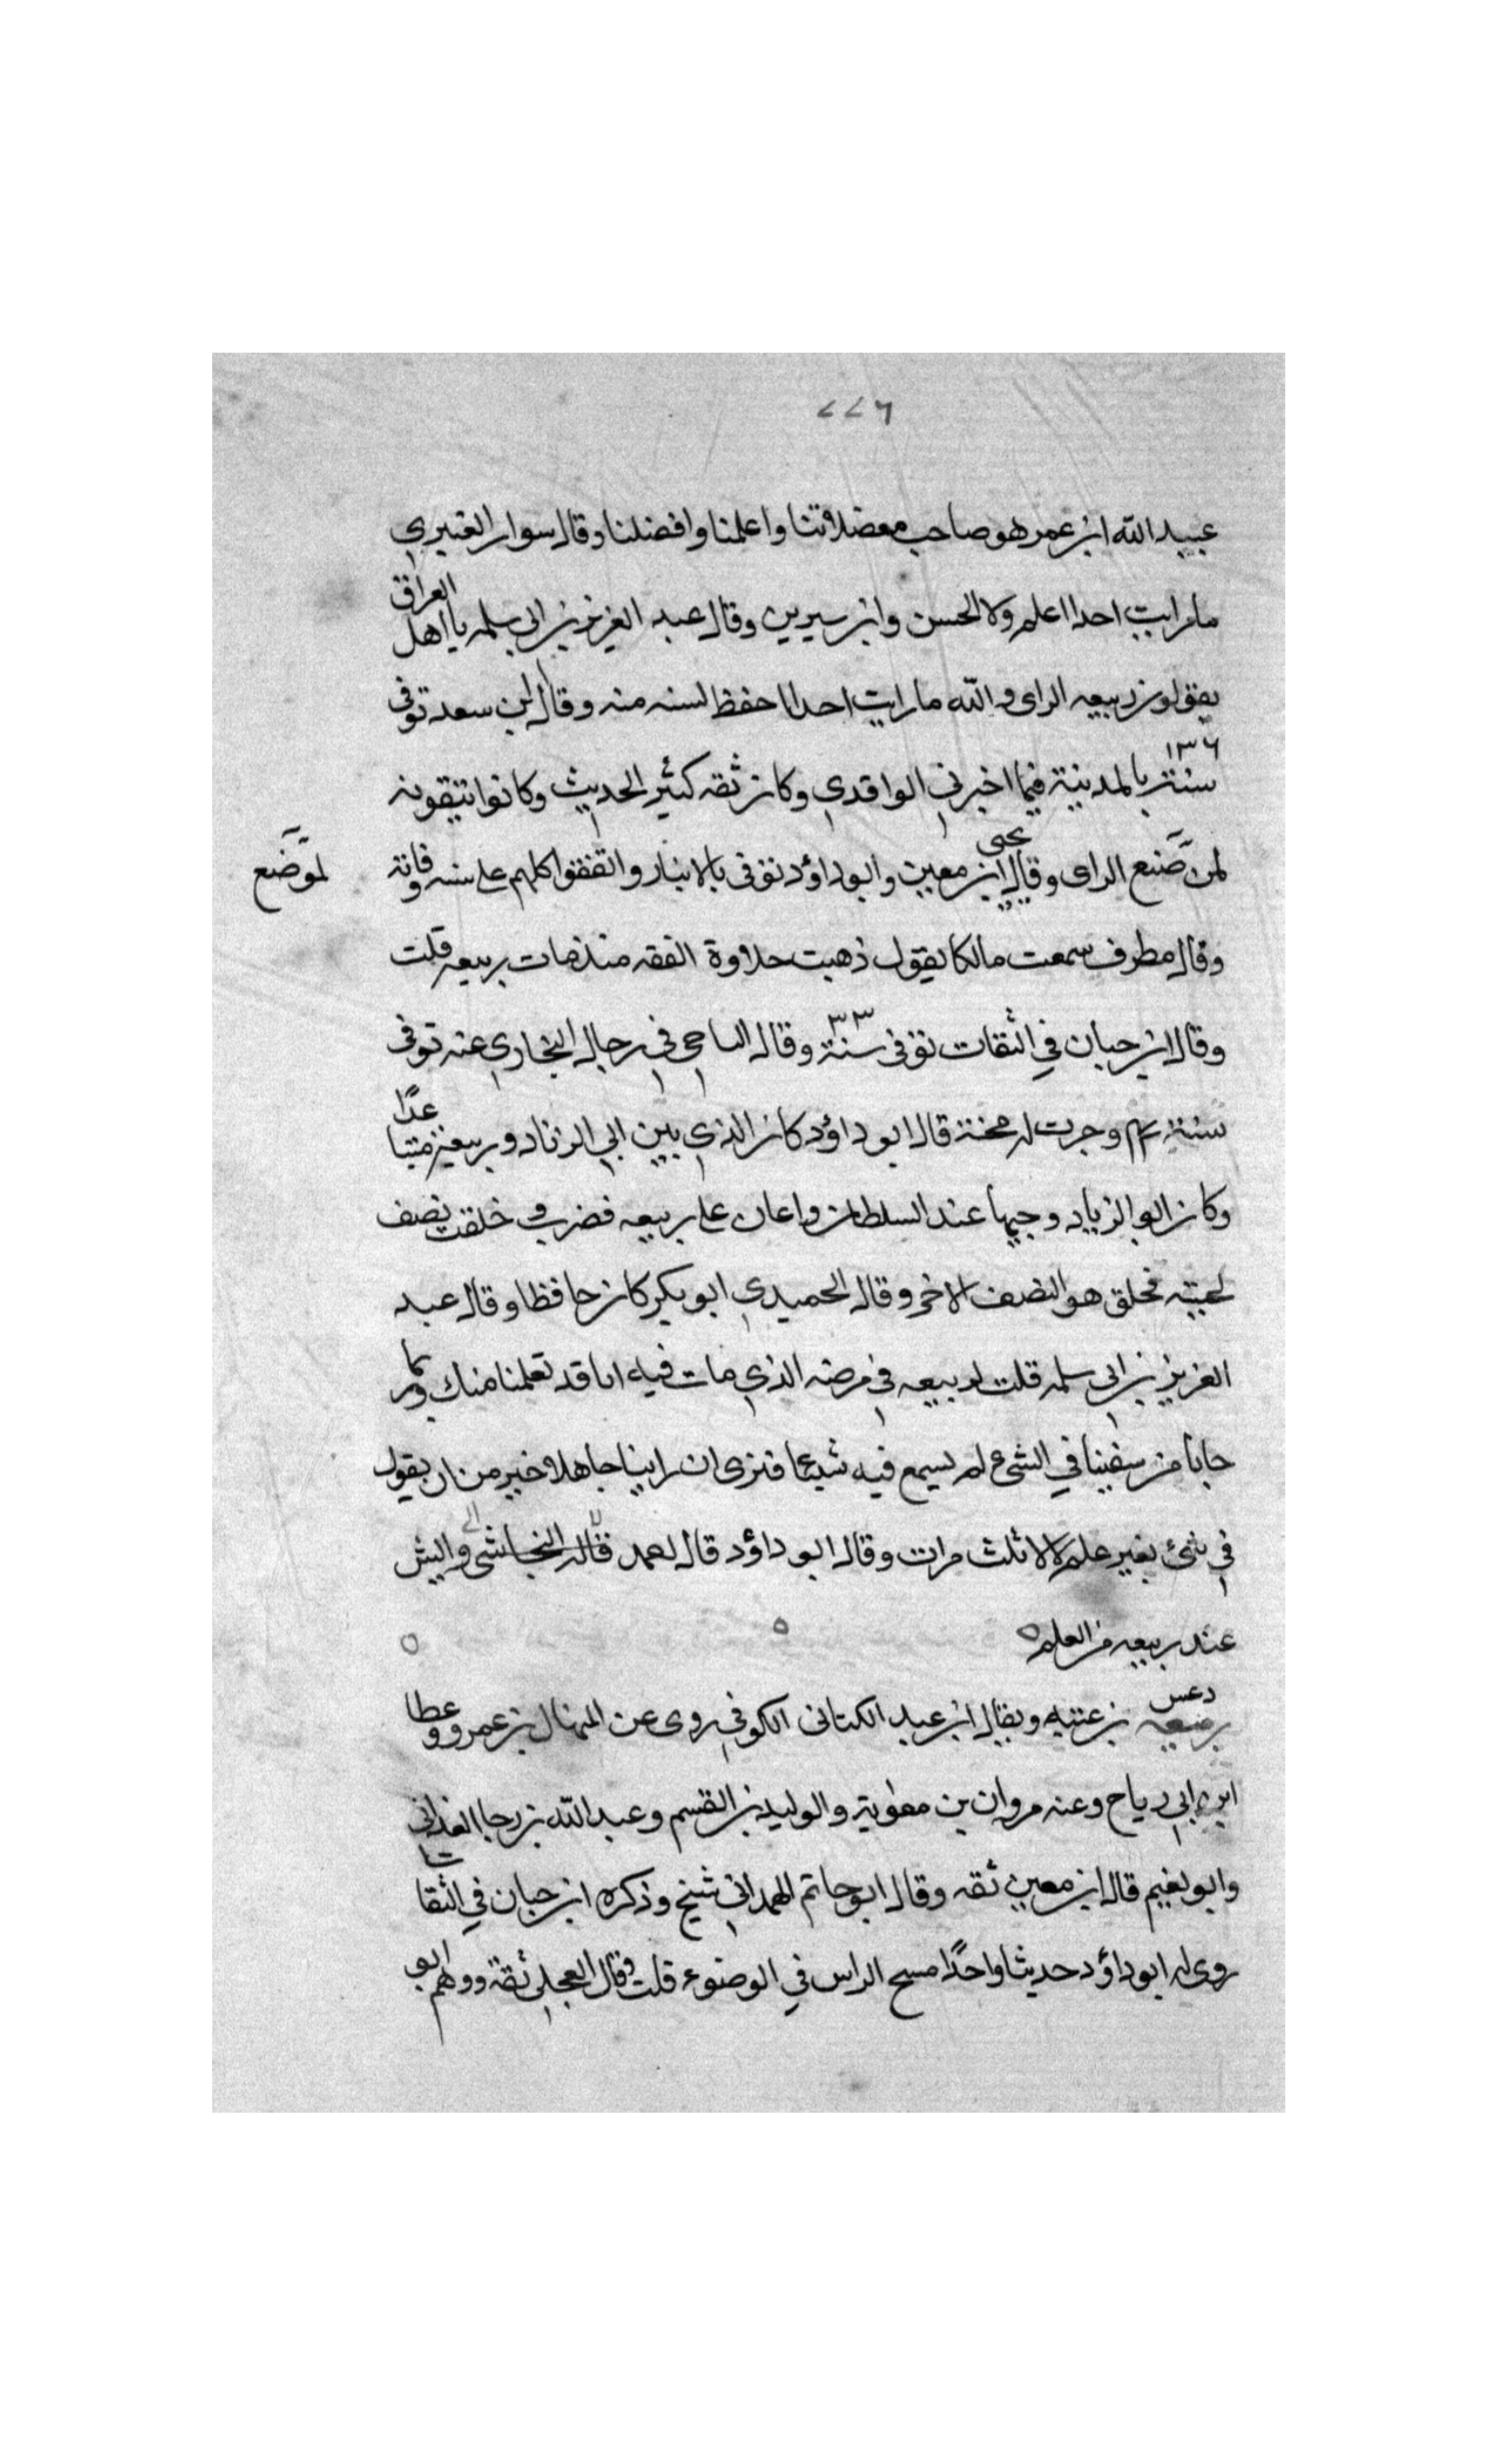 ٢٢٦
عبيد الله ابن عمر هو صاحب معضلاتنا واعلمنا وافضلنا وقال سوار العنبري
ما رايت احدا اعلم ولا الحسن وابن سيرين وقال عبد العزيز بن ابي سلمه يا اهل العراق
يقولون ربيعه الراى والله ما رايت احدا احفظ لسنه منه وقال ابن سعد توفى
سنة ١٣٦ بالمدينة فيما اخبرني الواقدي وكان ثقه كثير الحديث وكانوا يتقونه
لمن ضنع الراى وقال يحيى ابن معين وابو داؤد توفى بالانبار واتفقوا كلهم على سنه وفاته
لموضع
وقال مطرف سمعت مالكا يقول ذهبت حلاوة الفقه منذ مات ربيعه قلت
وقال ابن حبان في الثقات توفى سنة ٣٣ وقال الباجى في رجال البخاري عنه توفى
سنة وجرت له محنة قال ابو داؤد كان الذي بين ابي الزناد وربيعة متباعدا
وكان ابو الزناد وجيها عند السلطان واعان على ربيعه فضرب و خلقت نصف
لحيته فحلق هو النصف الاخر وقال الحميدي ابو بكر كان حافظا وقال عبد
العزيز بن ابي سلمه قلت لربيعه في مرضه الذي مات فيه انا قد تعلمنا منك وربما
جانا من يستفتينا في الشئ لم يسمع فيه شيئا فنرى ان راينا جاهلا خير من ان يقول
في شئ بغير علم الا ثلث مرات وقال ابو داؤد قال احمد والبش
عند ربيعه من العلم
ربيعه بن عتبه ويقال ابن عبيد الكنانى الكوفي روى عن المنهال بن عمرو وعطا
دعس
ابن ابي رياح وعنه مروان بن معاوية والوليد بن القسم وعبد الله بن رجا الغدانى
وابو نعيم قال ابن معين ثقه وقال ابو حاتم الهمداني شيخ وذكره ابن حبان في الثقات
روى له ابو داؤد حديثا واحدًا مسح الراس في الوضوء قلت وقال العجلي ثقة ووهم ابو